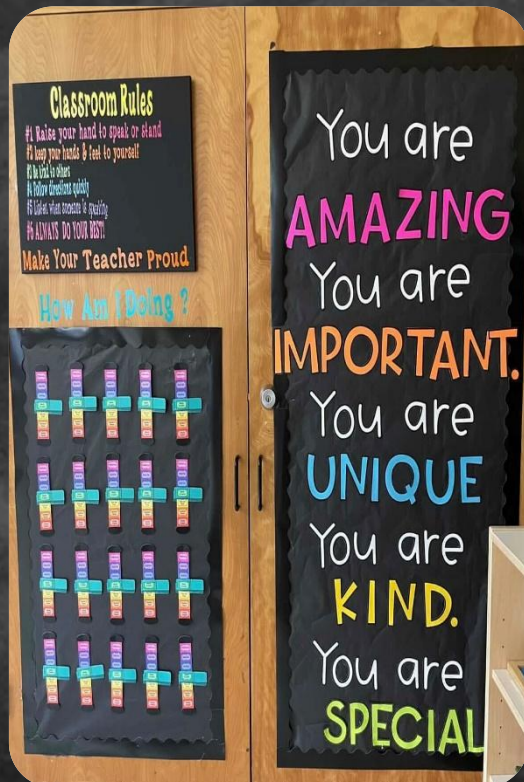 Classroom Rules
#1 Raise your hand to speak or stand
#2 keep your hands & feet to yourself
#3 Be kind to others
#4 Follow directions quickly
#5 Listen when someone is speaking
#6 ALWAYS DO YOUR BEST!
Make Your Teacher Proud
How Am I Doing ?
You are
AMAZING
You are
IMPORTANT.
You are
UNIQUE
You are
KIND.
You are
SPECIAL